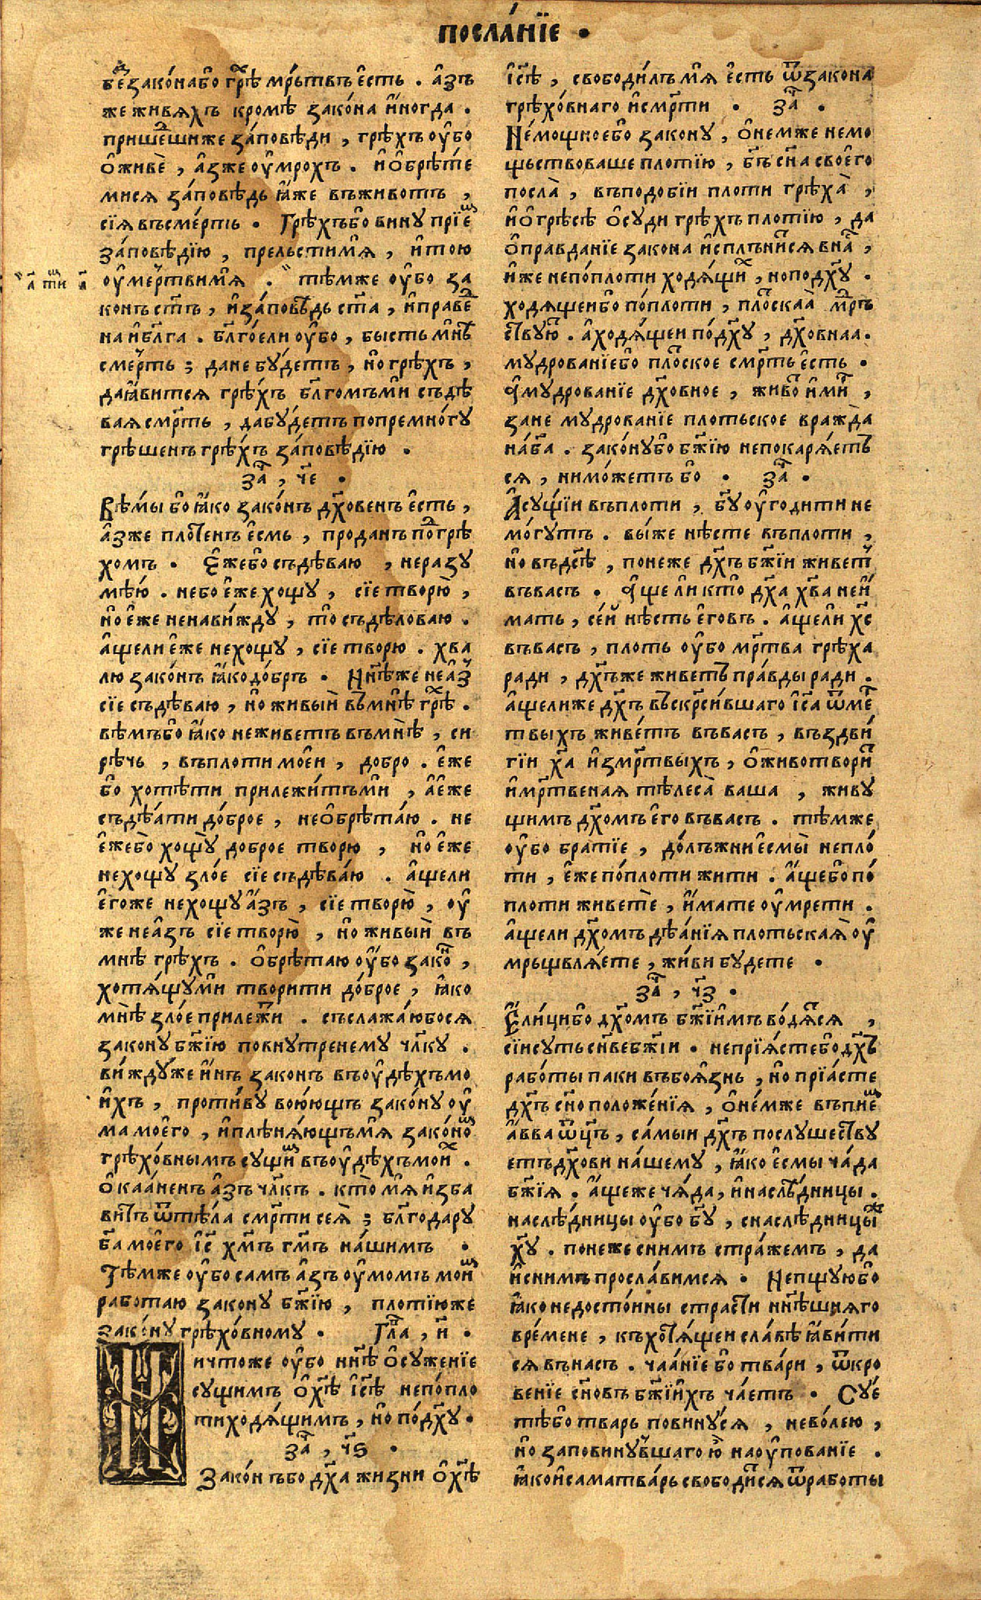 посла́нїе •
беⷥзако́набо грⷯѣ мр҃ьтвъ е҆сть . а҆зъ
же живяхъ кромѣ зако́на и҆ногда .
прише́ⷣшиже за́повѣди , грѣхъ оу҆бо
ѻ҆живѐ , а҆зже оу҆мрохъ . и҆ѻ҆брѣ́те
мися за́повѣдь ꙗ҆же въживотъ ,
сїя въсме́рть . Грѣхъбо вину прїеⷨ
за́повѣдїю , прельстимѧ , и҆тою
оу҆ме́ртвимѧ . тѣмже оу҆бо за
конъ ст҃ъ , и҆за́повѣдь ст҃а , и҆правеⷣ
на и҆бл҃га . бл҃гоели оу҆бо , бысть мнѣ
сме́рть ; дане бу́детъ , но грѣхъ ,
даꙗ҆вится грѣхъ бл҃гомъми съдѣ
вая смр҃ть , дабу́детъ попремно́гу
грѣшенъ грѣхъ за́повѣдїю .
заⷱ҇ , ч҃е .
Вѣмы бо ꙗ҆ко зако́нъ дх҃овенъ е҆сть ,
а҆зже плоⷮенъ е҆смь , проданъ поⷣгрѣ
хомъ . Е҆жебо съдѣваю , неразу
мѣ́ю . небо е҆же хощу , сїе творю̀ ,
но е҆же ненави́жду , то съдѣловаю .
а҆щели е҆же нехощу , сїе творю . хва
лю зако́нъ ꙗ҆кодо́бръ . Нн҃ѣже неаⷥ
сїе съдѣваю , но живый въмнѣ грⷯѣ .
вѣмъбо ꙗ҆ко неживетъ въмнѣ̀ , си
рѣчь , въплоти мое́й , добро . е҆же
бо хотѣ́ти прилежи́тъми , а҆е҆же
съдѣ́ати до́брое , неѻ҆брѣта́ю . не
е҆жебо хощу̀ доброе творю̀ , но е҆же
нехощу зло́е сїе съдѣва́ю . а҆щели
е҆гоже нехощу а҆зъ , сїе творю̀ , оу҆
же неазъ сїе творю̀ , но живый въ
мнѣ грѣхъ . ѻ҆брѣтаю оу҆бо закоⷩ ,
хотя́щуми творити до́брое , ꙗ҆ко
мнѣ̀ зло́е прилежиⷮ . съслажа́юбося
закону бж҃їю повнутренему чл҃ку .
ви́ждуже и҆нъ законъ въоу҆дѣхъмо
и҆хъ , проти́ву воююще зако́ну оу҆
ма мое́го , и҆плѣня́ющъмя зако́ноⷨ
грѣхо́внымъ сущиⷨ въоу҆дѣхъмоиⷯ .
ѻ҆каа́ненъ а҆зъ чл҃къ . кто̀ мя и҆зба
витъ ѿтѣла смр҃ти сея̀ ; бл҃годару
ба҃ моего і҆с҃ хм҃ъ гм҃ъ на́шимъ .
Тѣмже оу҆бо самъ а҆зъ оу҆момъ моиⷨ
работаю закону бж҃їю , плотїюже
зако́ну грѣхо́вному . Глⷡ҇а , и҃ .
Ничтоже оу҆бо нн҃ѣ ѻ҆сужение
сущимъ ѻ҆хс҃ѣ і҆с҃ѣ непо́пло
ти ходя́щимъ , но по́дх҃у .
заⷱ҇ , ч҃ѕ .
Зако́нъбо дх҃а жизни ѻ҆хс҃ѣ
і҆с҃ѣ , свободи́лъ мя е҆сть ѿзакона
грѣхо́внаго и҆смр҃ти . заⷱ҇ .
Не́мощноебо закону , ѻ҆немже немо
щьствоваше плотїю , бг҃ъ сн҃а своего
посла̀ , въподобїи плоти грѣха̀ ,
и҆ѻ҆грѣсѣ ѻ҆суди грѣхъ плотїю , да
ѻ҆правданїе закона и҆сплънится внаⷭ ,
и҆же непоплоти ходя́щиⷯ , ноподх҃у .
ходящеибо по́плоти , плоⷮскаа̀ мрⷣъ
ствуюⷮ . а҆ходя́щеи по́дх҃у , дх҃овнаа .
мудрованїебо плоⷮское смр҃ть е҆сть .
а҆мудрованїе дх҃овное , живоⷮ и҆миⷬ ,
зане мудрованїе плотьское вражда
наба҃ . зако́нубо бж҃їю непокаря́етъ
ся , ниможетъ бо . заⷱ҇ .
А҆сущїи въплоти , бг҃у оу҆годити не
мо́гутъ . выже нѣсте въплоти ,
но въдс҃ѣ , понеже дх҃ъ бж҃їи живеⷮ
въвасъ . а҆ще ли кто̀ дх҃а хв҃а неи
мать , се́й нѣсть е҆говъ . а҆щели хс҃
въвасъ , плоть оу҆бо мр҃тва грѣха
ради , дх҃ъже живетъ пра́вды ради .
а҆щелиже дх҃ъ въскр҃си́вшаго і҆с҃а ѿмеⷬ
твыхъ живе́тъ въвасъ , въздви
гїи ха҃ и҆змр҃твыхъ , ѻ҆животвориⷮ
и҆мр҃твеная тѣлеса̀ ваша , живу
щимъ дх҃омъ е҆го въвасъ . тѣмже
оу҆бо братїе , до́лъжни е҆смы̀ непло
ти , е҆же по́плоти жити . а҆щебо по́
плоти живетѐ , и҆мате оу҆мрети .
а҆щели дх҃омъ дѣа́нїя плотьская̀ оу҆
мрьщвля́ете , жи́ви будете .
заⷱ҇ , ч҃з .
Е҆ли́цибо дх҃омъ бж҃їимъ во́дяⷮся ,
сїи суть сн҃ве бж҃їи . непрїя́стебо дх҃ъ
рабо́ты паки въбоя́знь , но прїа́сте
дх҃ъ сн҃о положе́нїя , ѻ҆не́мже въпиеⷨ
а҆́вва ѿц҃ъ , са́мыи дх҃ъ послушеству
етъ дх҃ови на́шему , ꙗ҆ко е҆смы ча́да
бж҃їя . а҆щеже ча́да , и҆наслѣ́дницы .
наслѣ́дницы оу҆бо бг҃у , снаслѣ́дницыⷤ
хр҃у . понеже снимъ стра́жемъ , да
и҆снимъ просла́вимся . Непщуюбо
ꙗ҆ко недосто́йны страсти нн҃ѣшняго
вре́мене , къхотя́щеи сла́вѣ ꙗ҆ви́ти
ся въна́съ . чаа́нїе бо тва́ри , ѿкро
венїе сн҃овъ бж҃їихъ ча́етъ . Суе
тѣ́бо тварь повину́ся , нево́лею ,
но заповину́вшаго ю҆ на оу҆пованїе .
ꙗ҆кои҆саматва́рь свободиⷮся ѿработы